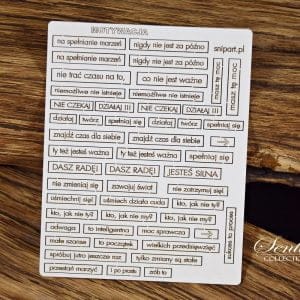 MOTYWACJA
na spełnianie marzeń nigdy nie jest za późno snipart.pl
na spełnianie marzeń nigdy nie jest za późno
nie trać czasu na to, co nie jest ważne
niemożliwe nie istnieje niemożliwe nie istnieje
masz tę moc
masz tę moc
NIE CZEKAJ DZIAŁAJ !!! NIE CZEKAJ DZIAŁAJ !!!
działaj twórz spełniaj się działaj twórz spełniaj się
znajdź czas dla siebie znajdź czas dla siebie
ty też jesteś ważna ty też jesteś ważna spełniaj się
DASZ RADĘ! DASZ RADĘ! JESTEŚ SILNA
nie zmieniaj się zawojuj świat nie zatrzymuj się!
uśmiechnij się! uśmiech działa cuda kto, jak nie ty?
kto, jak nie ty? kto, jak nie ty? kto, jak nie my?
odwaga to inteligentna moc sprawcza
małe szanse to początek wielkich przedsięwzięć
spróbuj jutro jeszcze raz zmiany są dobre
przestań marzyć i po prostu zrób to
sukces to proces
Senti
COLLECTION